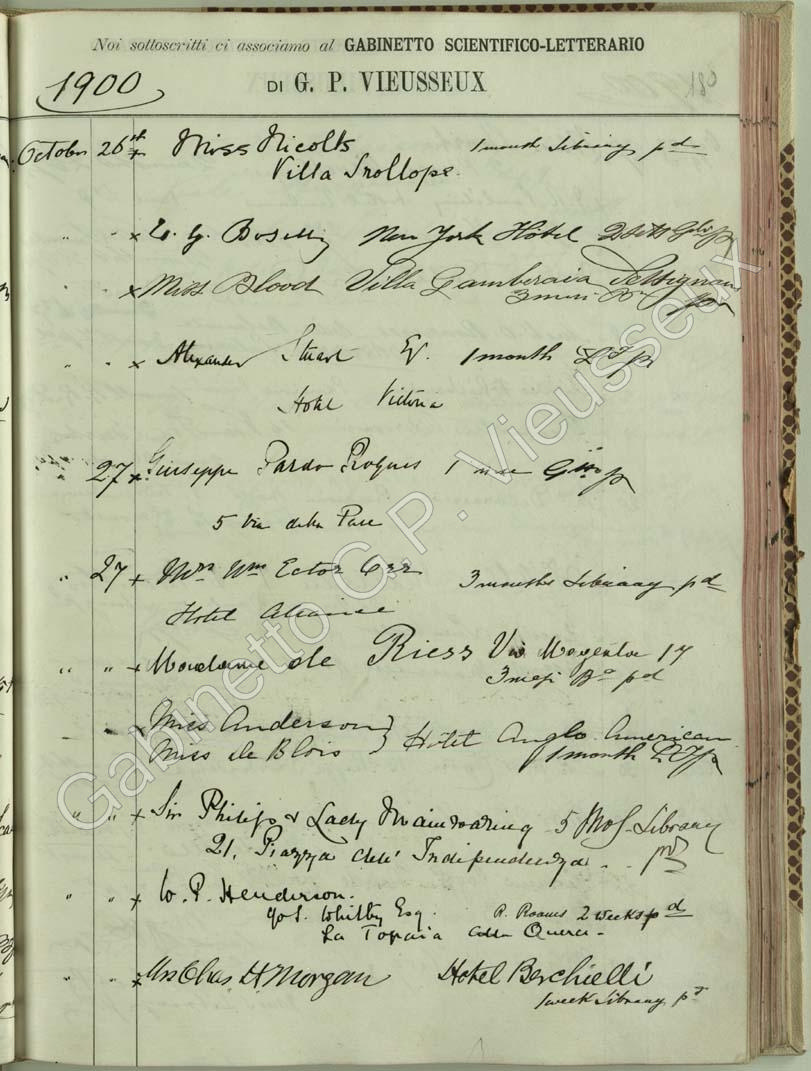 Noi sottoscritti ci associamo al GABINETTO SCIENTIFICO-LETTERARIO
1900 DI G. P. VIEUSSEUX 180
October 26 Miss Nicolls 1 month Library pd
Villa Trollope
" " New York Hotel
Miss Blood Villa Gamberaia Settignano
3 mesi
" " Alexander Stuart 1 month
Hotel Victoria
27 Giuseppe Pardo Roques 1 mese
5 Via della Pace
" 27 Mrs Wm Ector Orr 3 months Library pd
Hotel
" " Madame de Riess Via Magenta 17
3 mesi pd
Miss Anderson
Miss de Blois } Hotel Anglo American
1 month
" " Sir Philip & Lady Mainwaring 5 Mos. Library
21. Piazza dell' Independenza pd
" " W. P. Henderson.
Whitby Esq. R. Rooms 2 weeks pd
La Topaia
" " Mrs Chas H Morgan Hotel Berchielli
1 week Library pd
Gabinetto G.P. Vieusseux